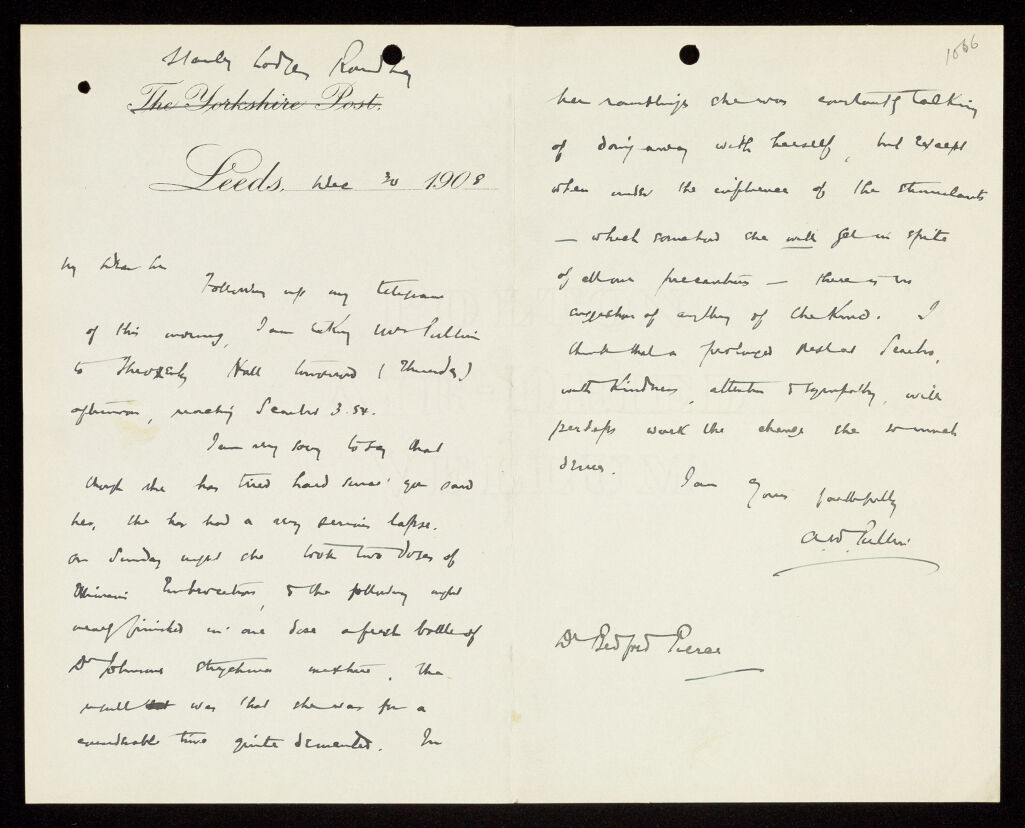 Stanley Lodge, Roundhay
The Yorkshire Post.
Leeds, Dec 30 1908
My dear Sir
Following up my telegram
of this morning, I am taking Mrs Pullin
to Throxenby Hall tomorrow (Thursday)
afternoon, reaching Scarbro 3.54.
I am very sorry to say that
though she has tried hard since you saw
her, she has had a very serious lapse.
On Sunday night she took two doses of
Elliman's Embrocation, & the following night
nearly finished in one dose a fresh bottle of
Dr Johnson's strychnine mixture, the
result was that she was for a
considerable time quite demented. In
1066
her ramblings she was constantly talking
of doing away with herself, but except
when under the influence of the stimulants
— which somehow she will get in spite
of all our precautions — there is no
suggestion of anything of the kind. I
think that a prolonged rest at Scarbro,
with kindness, attention & sympathy, will
perhaps work the change she so much
desires.
I am Yours faithfully
A.W. Pullin
Dr Bedford Pierce